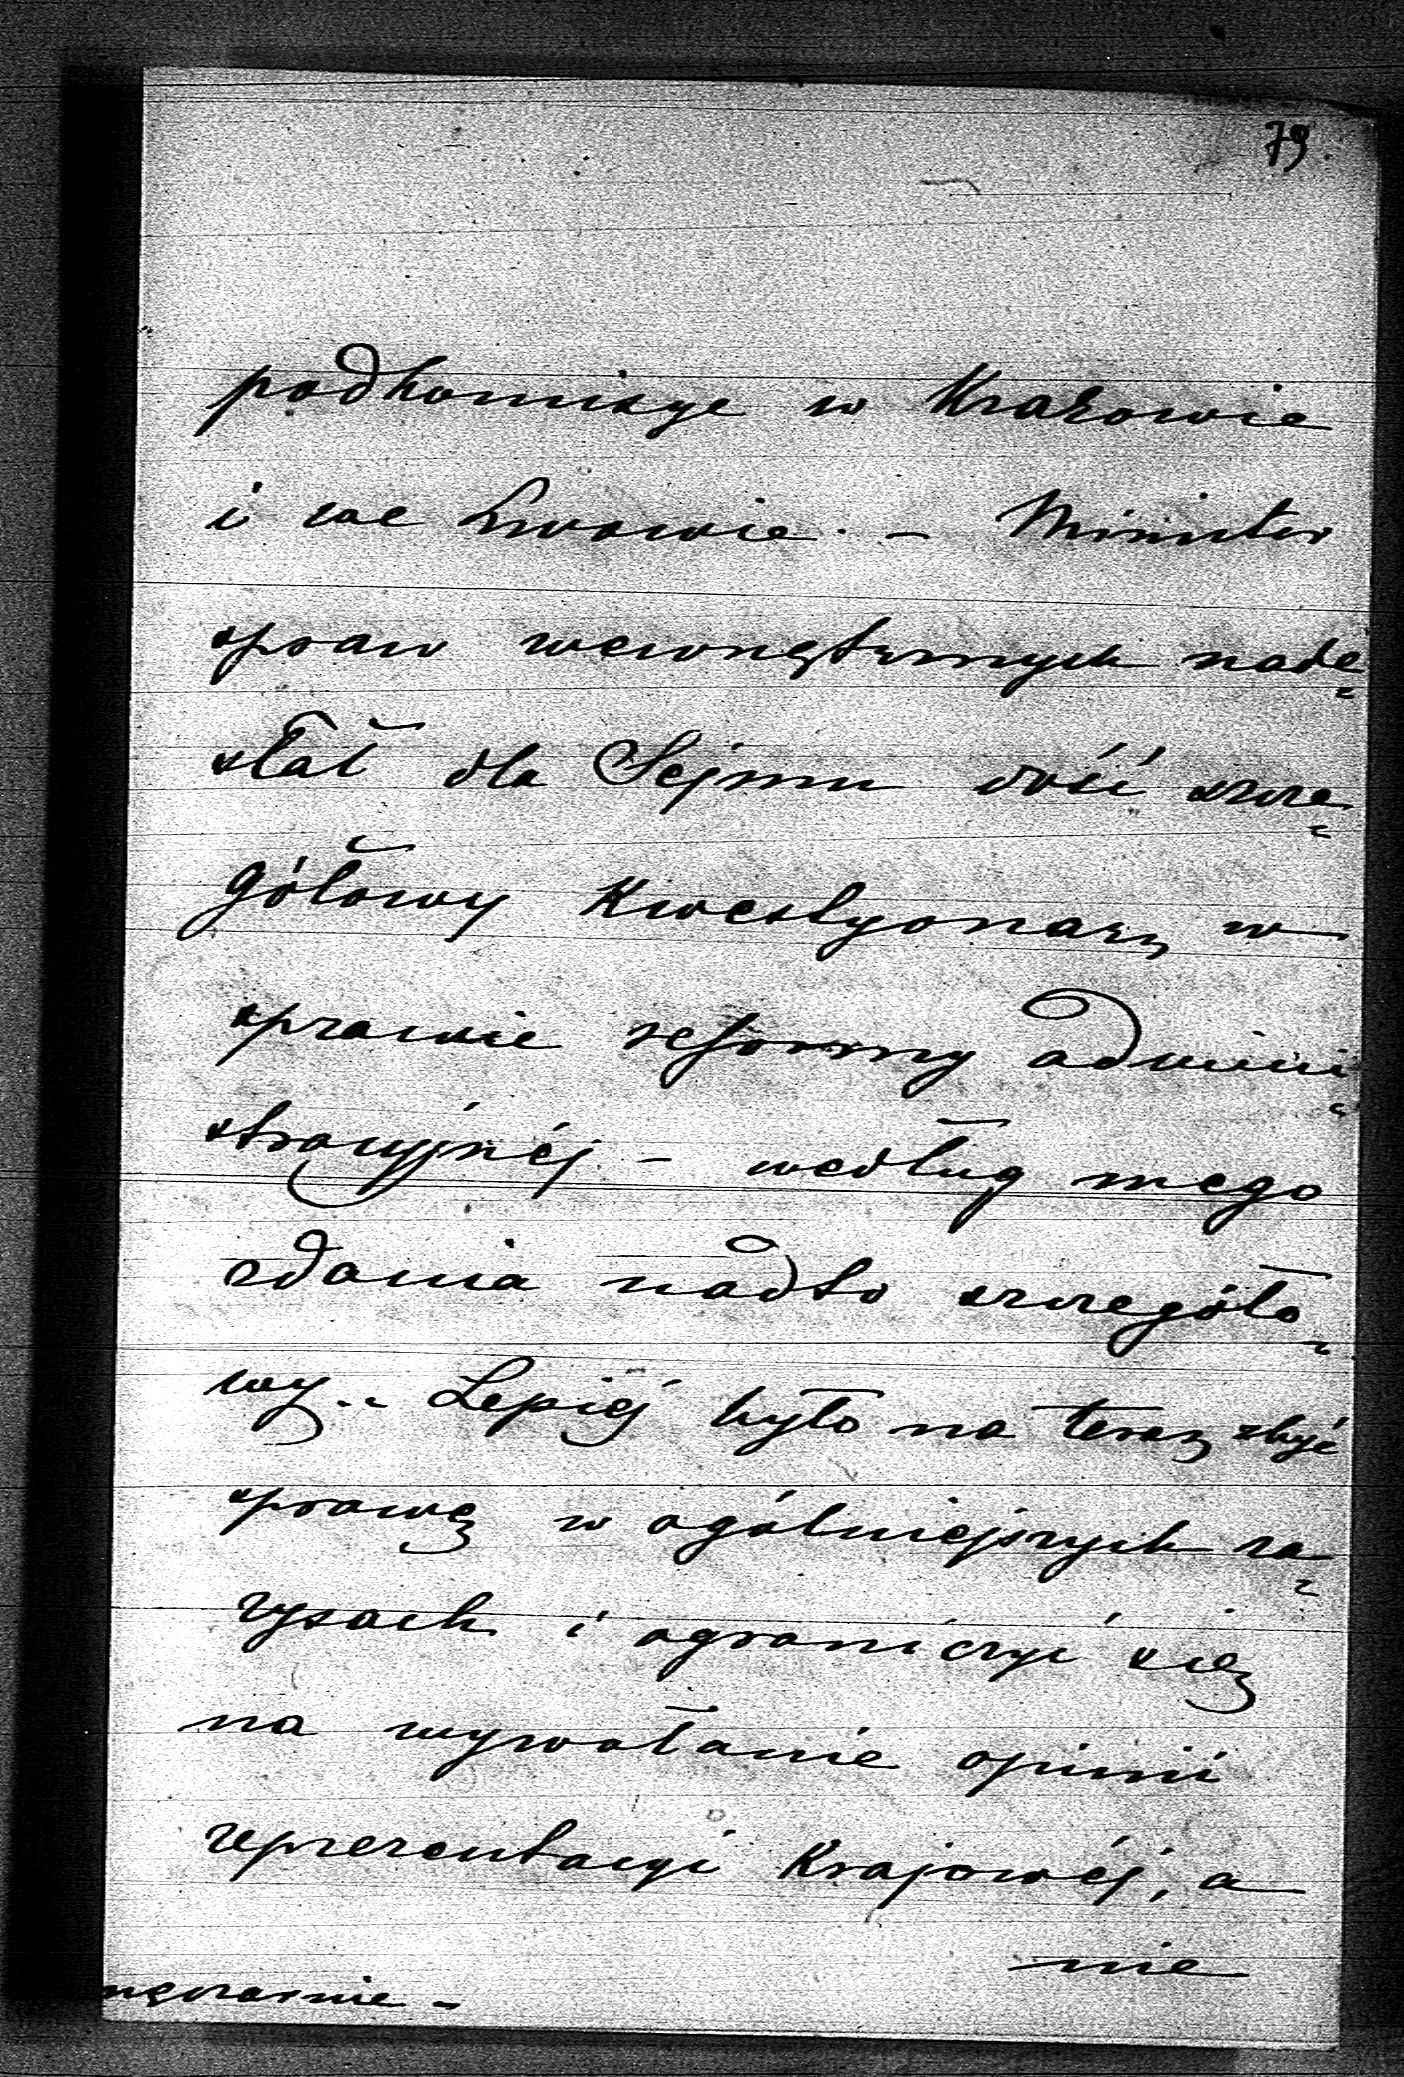 79
podkomisye w Krakowie
i we Lwowie. - Minister
spraw wewnętrznych nade-
słał dla Sejmu dość szcze-
gółowy Kwestyonarz w
sprawie reformy admini-
stracyjnéj - według mego
zdania nadto szczegóło-
wy. Lepiéj było na teraz zbyć
sprawę w ogólniejszych za-
rysach i ograniczyć się
na wywołanie opinii
reprezentacyi Krajowéj, a
nie